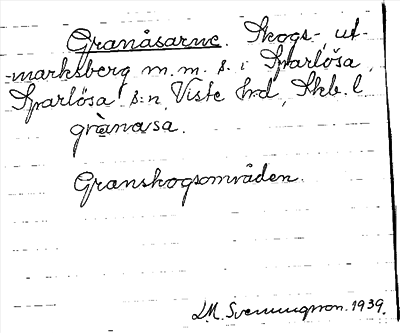 Granåsarne. Skogs-, ut-
-marksberg m.m. s. i Sparlösa,
Sparlösa s:n, Viste hrd, Skb. l.
grànasa.
Granskogsområden.
D.M. Svenningson. 1939.